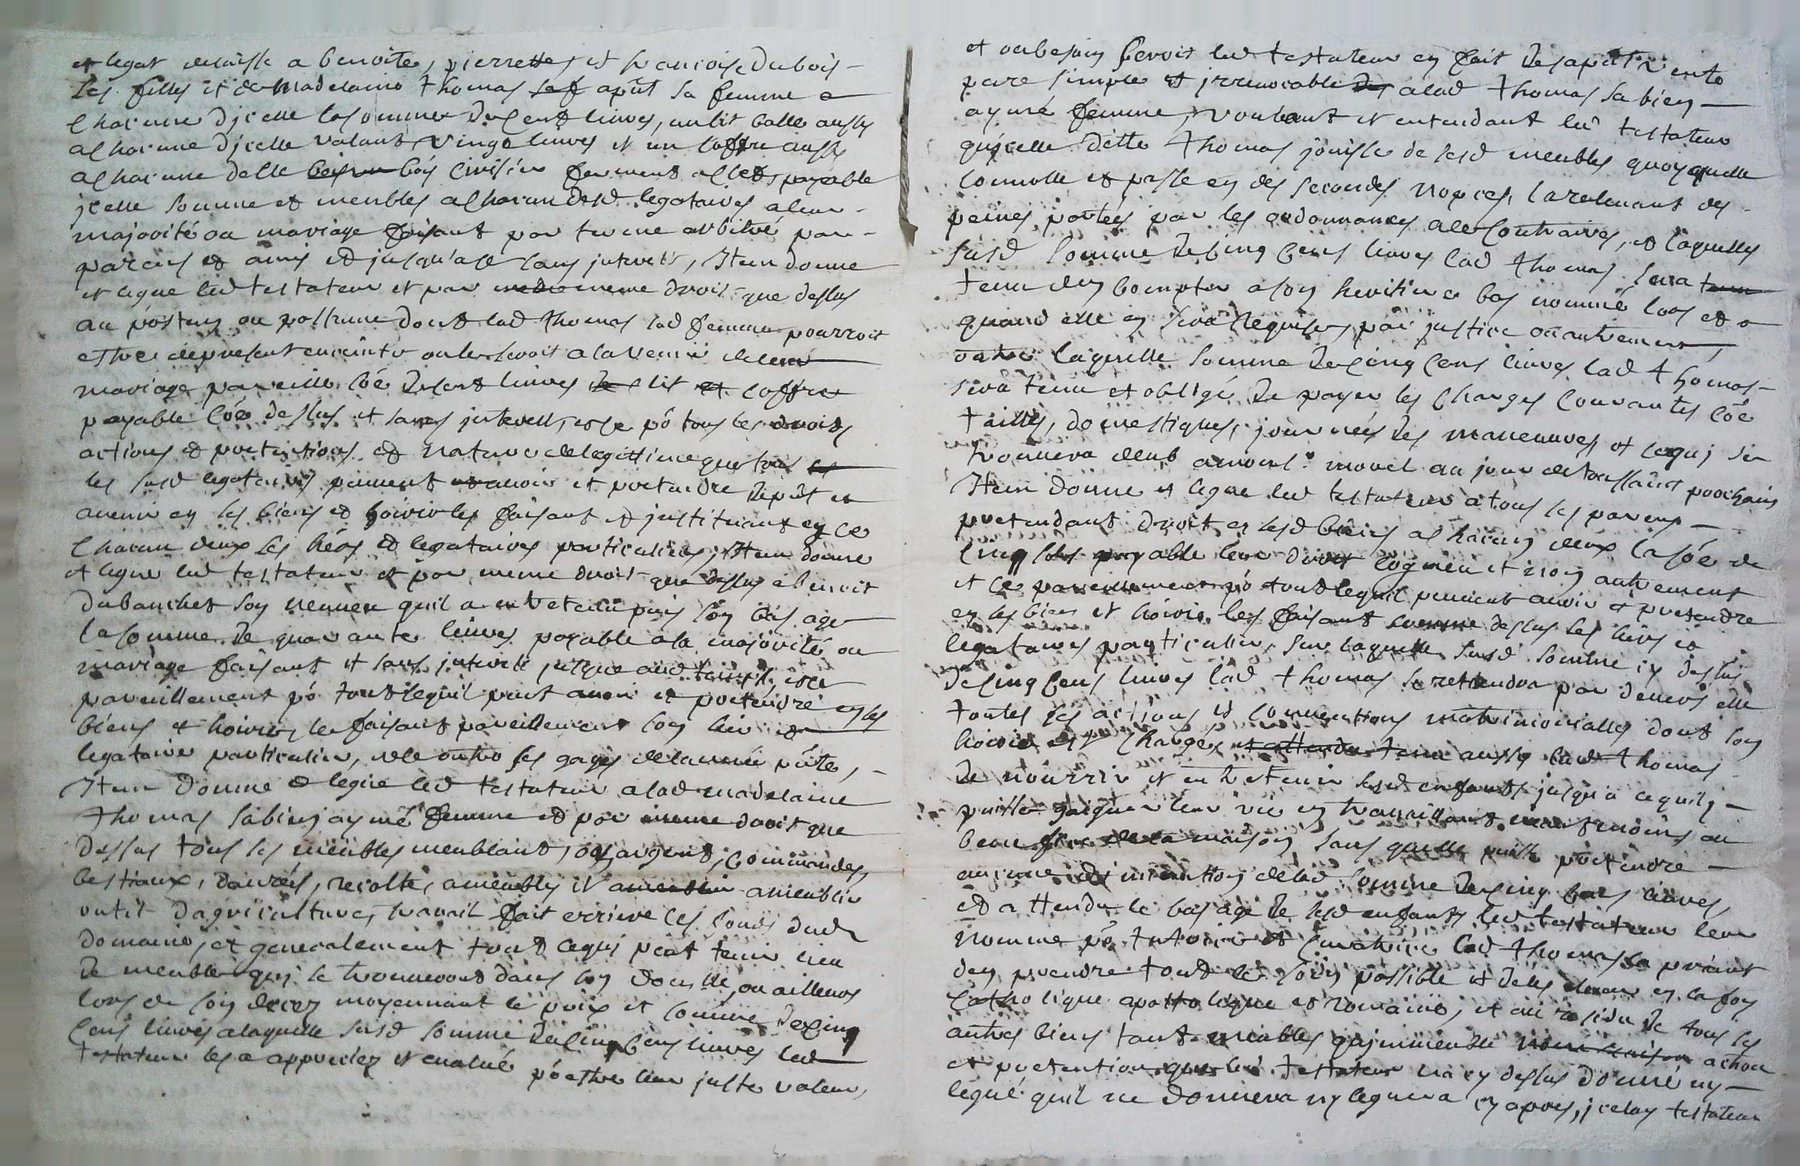 et legat delaisse a benoite, pierrette, et francoise dubois
ses filles et de Madelaine thomas sa femme a
chacune dicelle la somme de cent livres, un lit balle aussy
a chacune dicelle valant vingt livres et un coffre aussy
a chacune delle bois cerisier fermant a clef payable
icelle somme et meubles a chacun desd legataires a leur
majorité ou mariage faisant par terme arbitré par
parens et amis et jusqu'alle sans interets, Item donne
et legue led testateur et par meme droit que dessus
au postum ou postume dont lad thomas lad femme pourroit
estre de present enceinte ou le seroit a lavenir de leur
mariage pareille soe de cent livres lit et coffre
payable coe dessus et sans interest, et ce po tous les droits
actions et pretentions et nature de legitime que
les susd legataires peuvent avoir et pretendre de pnt et
avenir en ses biens et hoirie les faisant et instituant en ce
chacun deux ses heos et legataires particuliers, Item donne
et legue led testateur et par meme droit que dessus a benoit
dubanchet son neveu quil a entretenu puis son bas age
la somme de quarante livres payable a la majorité ou
mariage faisant et sans interets jusque aud temps, et ce
pareillement po tout ce quil peut avoir et pretendre en ses
biens et hoirie, le faisant pareillement son heir et
legataire particulier, et ce outre ses gages de lannée pnte,
Item donne et legue led testateur a lad madelaine
thomas sa bien aymé femme et par meme droit que
dessus tous les meubles meublants, or, argent, commandes,
bestiaux, danrées, recolte, ameublis et a ameublir
outil dagriculture, travail fait errieve les fonds dud
domaine, et generalement tout ce qui peut tenir lieu
de meuble qui se trouveront dans son domicile, ou ailleurs
lors de son deces moyennant le prix et somme de cinq
cens livres a laquelle susd somme de cinq cens livres led
testateur les a appreciez et evalué po estre leur juste valeur,
et au besoin seroit led testateur en fait des a present vente
pure simple et irrevocable a lad thomas sa bien
aymé femme, voulant et entendant led testateur
quicelle ditte thomas jouisse de sesd meubles quoyquelle
convolle et passe en des secondes nopces, la relevant des
peines portées par les ordonnances a ce contraires, et laquelle
susd somme de cinq cens livres lad thomas sera
tenu den compter a son heritier cy bas nommé lors et
quand elle en sera requise, par justice ou autrement,
outre laquelle somme de cinq cens livres lad thomas
sera tenu et obligé de payer les charges courantes coe
tailles, domestiques, journées des maneuvres et ce qui se
trouvera deub amors. mouel au jour de toussaint prochain
Item donne et legue led testateur a tous ses parens
pretendant droit en sesd biens a chacun deux la soe de
cinq sols payable leur droit cogneu et non autrement
et ce pareillement po tout ce quil peuvent avoir et pretendre
en ses biens et hoirie les faisant comme dessus ses heirs et
legataires particuliers, sur laquelle susd somme cy dessus
de cinq cens livres lad thomas se retiendra par devers elle
toutes ses actions et conventions matrimonialles dont son
hoirie est chargée aussy lad thomas
de nourrir et entretenir sesd enfants jusqu'a ce quils
puisse gaigner leur vie en travaillant neantmoins au
benefice de la maison, sans quelle puisse pretendre
aucune diminution de lad somme de cinq cens livres,
et attendu le bas age de sesd enfants led testateur leur
nomme po tutrice et curatrice lad thomas la priant
den prendre tout le soin possible et de les elever en la foy
catholique apostolique et romaine, et au residu de tous ses
autres biens tant meubles qu'immeuble action
et pretention que led testateur na cy dessus donné ny
legué quil ne donnera ny leguera cy apres, iceluy testateur